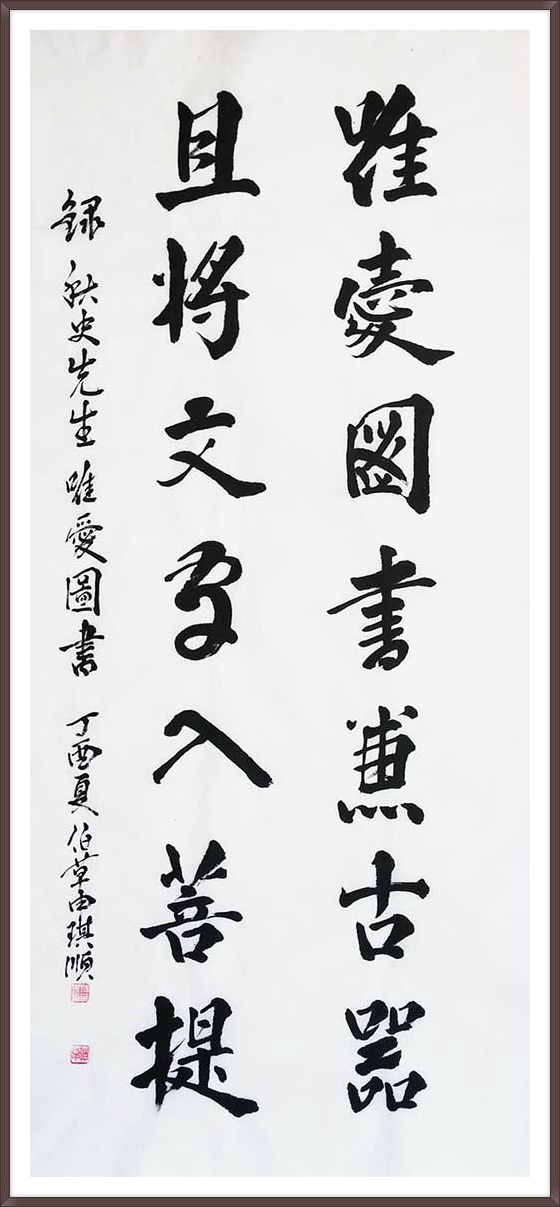 唯愛圖書兼古器
且将文字入菩提
錄 秋史先生 唯愛圖書 丁酉夏 伯草 琪順